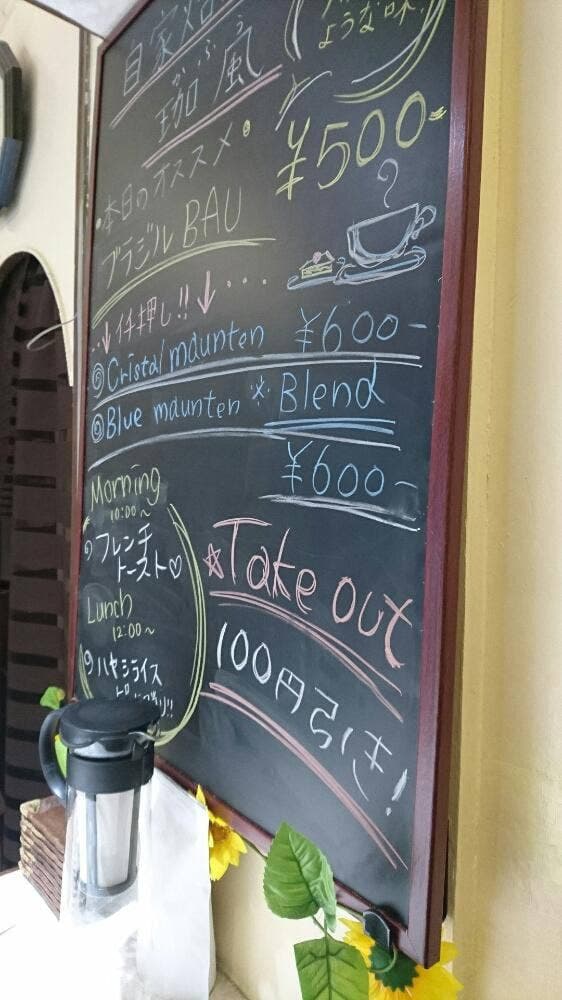 自家焙
かふう
珈風
ような味!
・本日のオススメ
¥500-
ブラジル BAU
↓イチ押し!!↓・・・
◎Cristal maunten ¥600-
◎Blue maunten ※ Blend
¥600-
Morning
10:00~
フレンチ
トースト♡
Lunch
12:00~
ハヤシライス
☆Take out
100円引き!